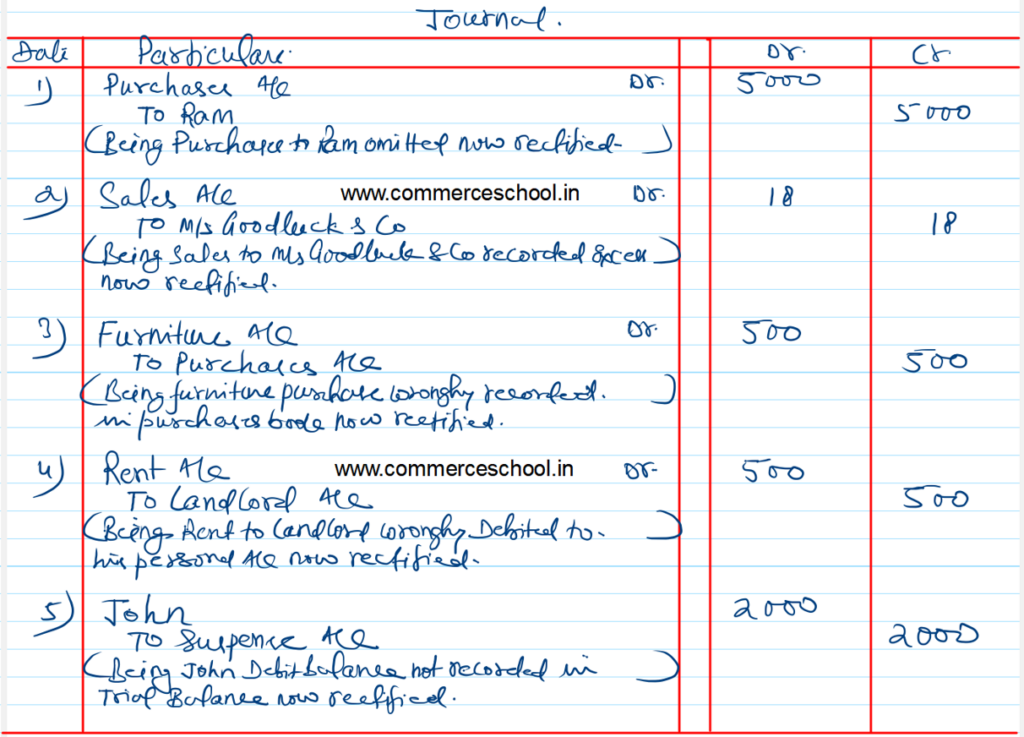 Journal.
Date Particulars Dr. Cr.
1) Purchases A/c Dr. 5000
To Ram 5000
(Being Purchase to Ram omitted now rectified-)
2) Sales A/c www.commerceschool.in Dr. 18
To M/s Goodluck & Co 18
(Being Sales to M/s Goodluck & Co recorded excess)
now rectified.
3) Furniture A/c Dr. 500
To Purchases A/c 500
(Being furniture purchase wrongly recorded.)
in purchases book now rectified.
4) Rent A/c www.commerceschool.in Dr- 500
To Landlord A/c 500
(Being Rent to Landlord wrongly Debited to-)
his personal A/c now rectified-
5) John 2000
To Suspence A/c 2000
(Being John Debit balance not recorded in)
Trial Balance now rectified.